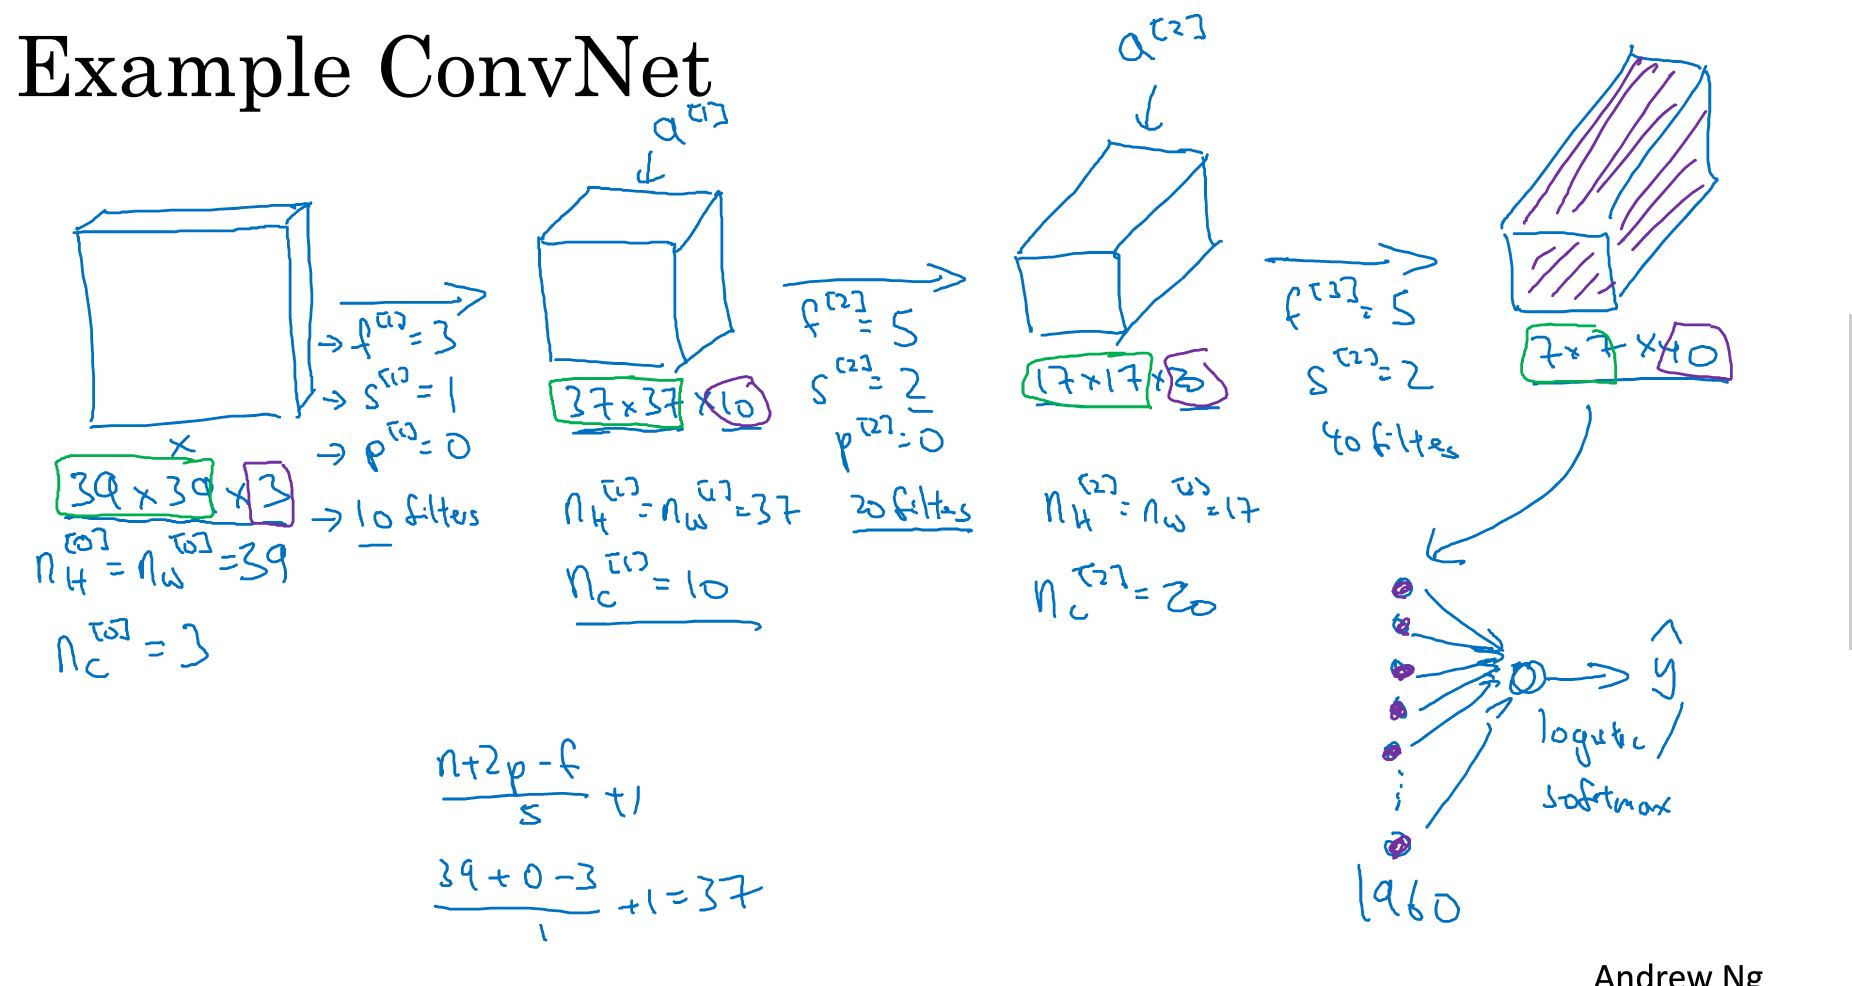 Example ConvNet
a^[1]
a^[2]
x
39 x 39 x 3
n_H^[0] = n_W^[0] = 39
n_C^[0] = 3
→ f^[1] = 3
→ s^[1] = 1
→ p^[1] = 0
→ 10 filters
37 x 37 x 10
n_H^[1] = n_W^[1] = 37
n_C^[1] = 10
f^[2] = 5
s^[2] = 2
p^[2] = 0
20 filters
17 x 17 x 20
n_H^[2] = n_W^[2] = 17
n_C^[2] = 20
f^[3] = 5
s^[2] = 2
40 filters
7 x 7 x 40
ŷ
logistic /
softmax
1960
n+2p-f
s
+1
39+0-3
1
+1 = 37
Andrew Ng